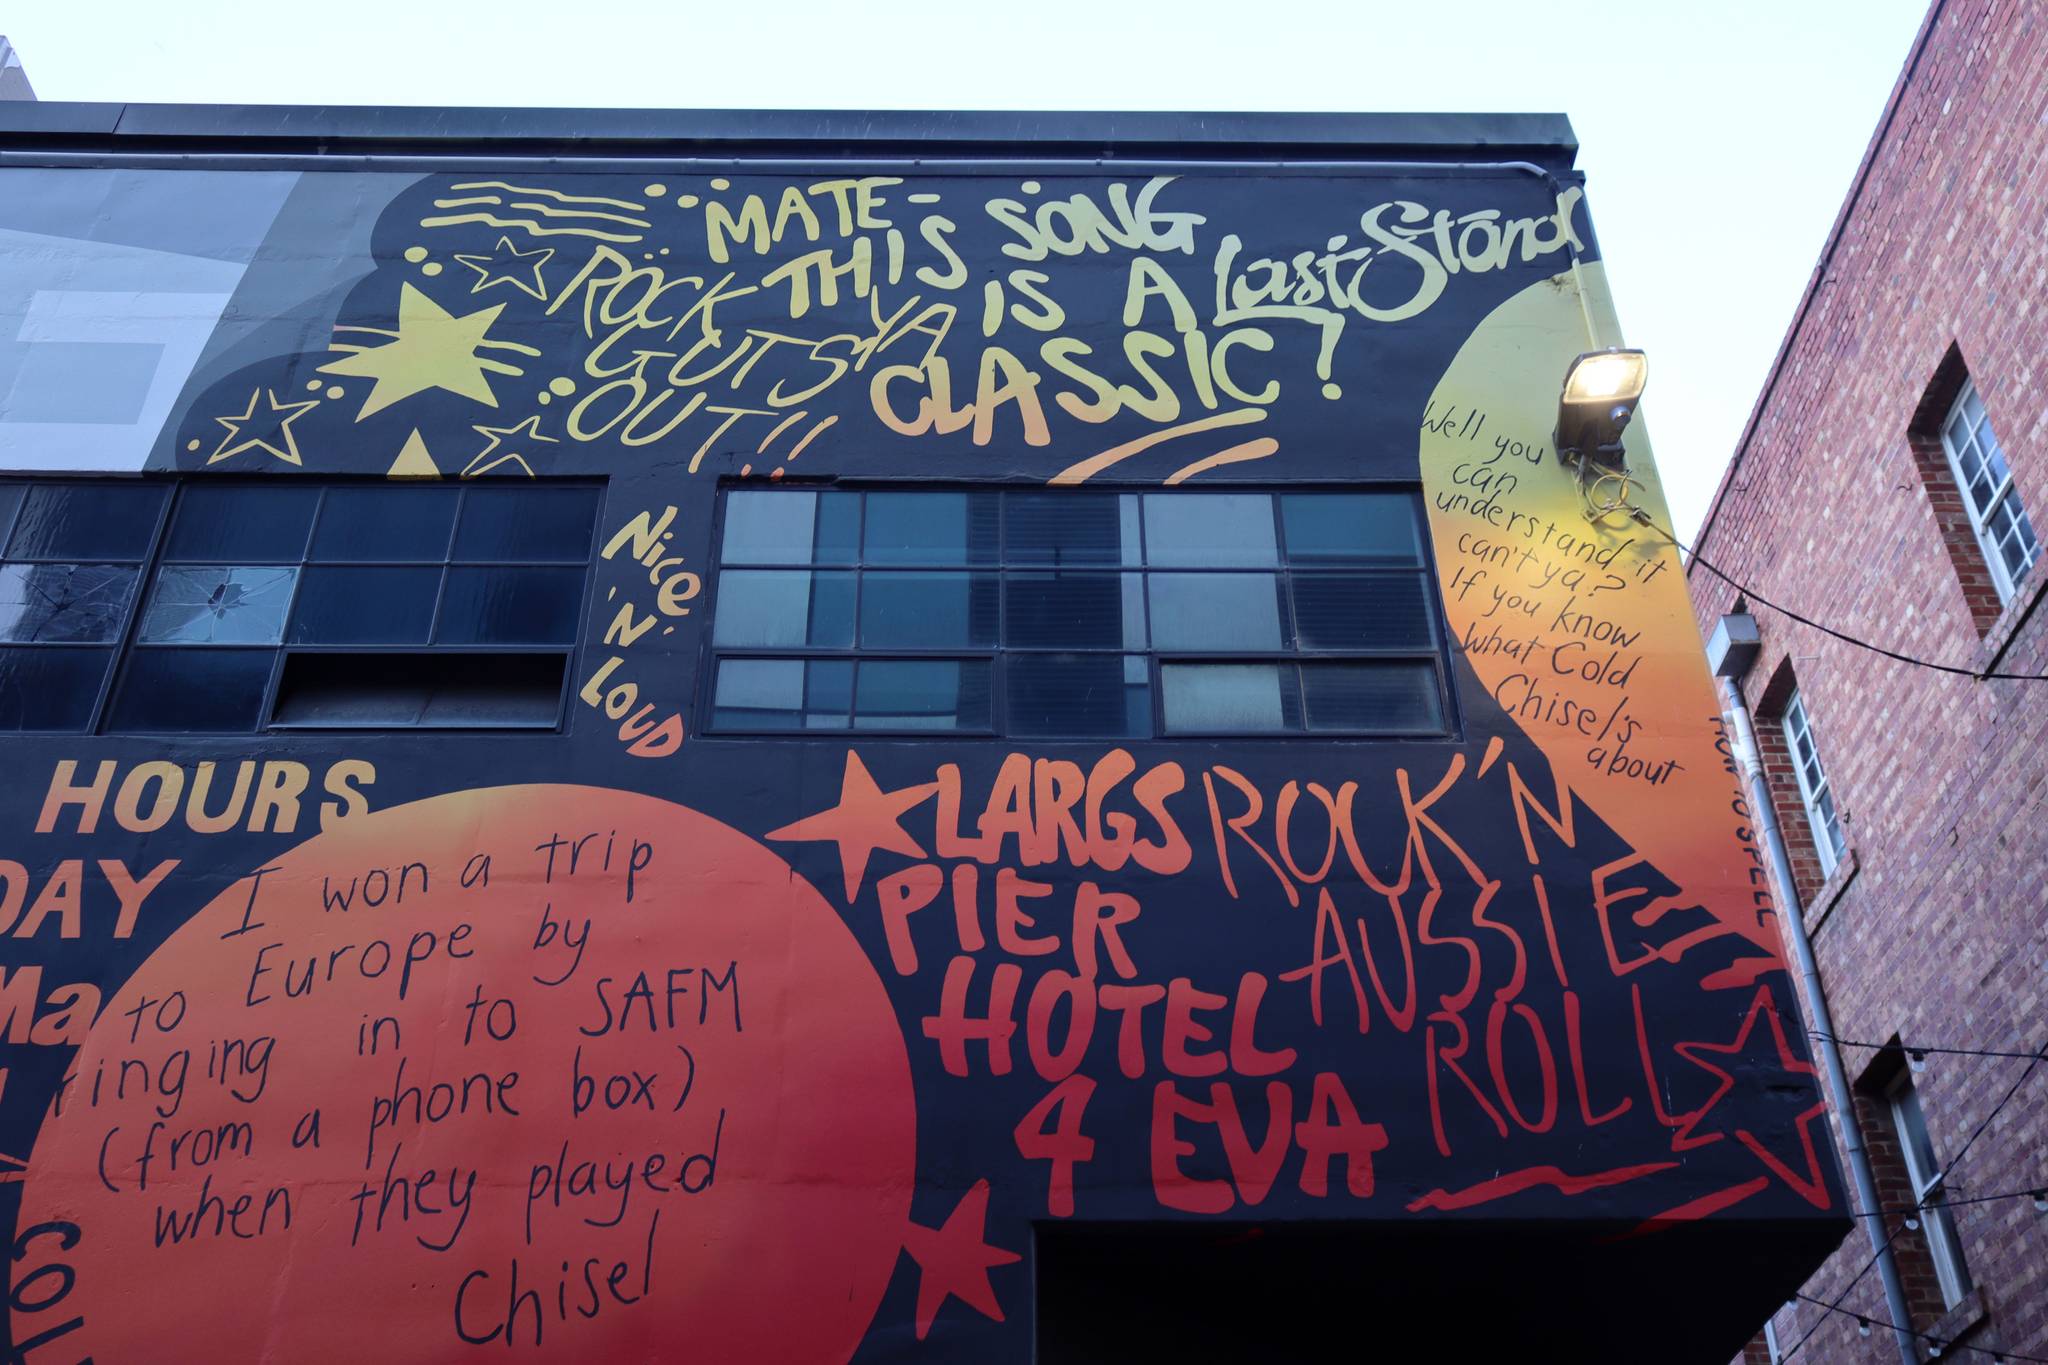 MATE-
THIS SONG
IS A
CLASSIC!
Last Stand
ROCK
YA
GUTS
OUT!!
Nice
'N'
LOUD
Well you
can
understand it
can't ya?
If you know
what Cold
Chisel's
about
HOW TO SPELL
HOURS
DAY
Ma
I won a trip
to Europe by
ringing in to SAFM
(from a phone box)
when they played
Chisel
LARGS
PIER
HOTEL
4 EVA
ROCK 'N
AUSSIE
ROLL
COL